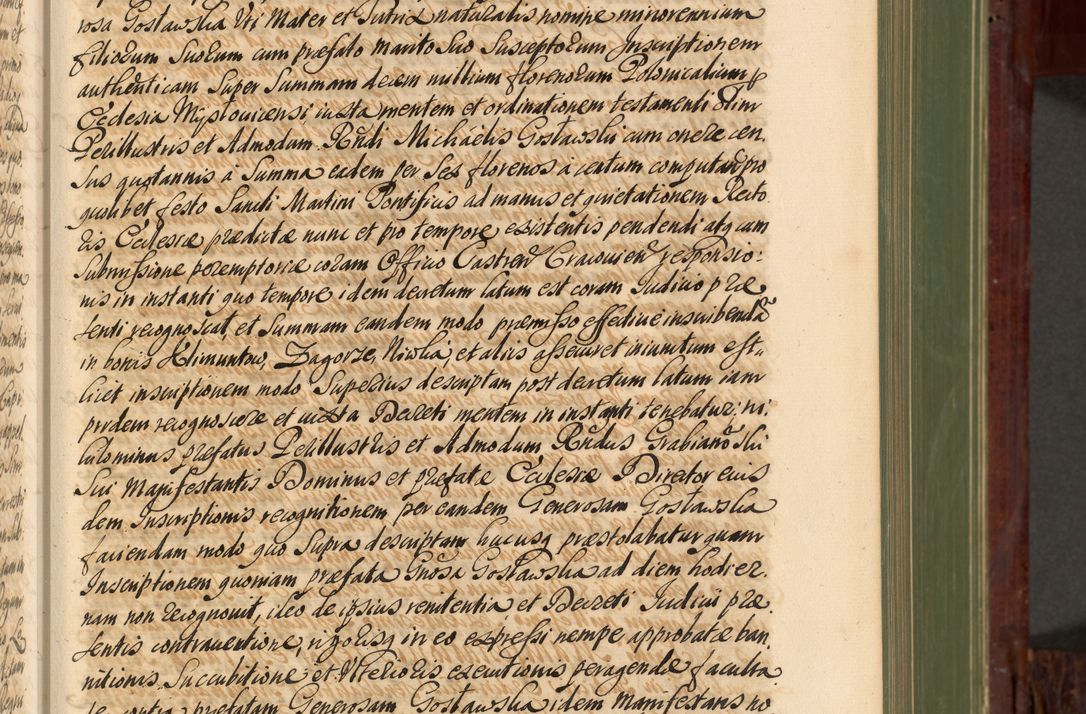 rosa Gosławska Uti Mater et Tutrix naturalis nomine minorennium
filiorum Suorum cum præfato marito Suo Susceptorum Inscriptionem
authenticam Super Summam decem millium florenorum Polonicalium p
Ecclesia Mysłoviciensi iuxta mentem et ordinationem testamenti Olim
Perillustris et Admodum Rndi Michaelis Gosławski cum onere cen
sus quotannis à Summa eadem per Sex florenos à centum computan pro
quolibet festo Sancti Martini Pontificis ad manus et quietationem Recto
ris Ecclesiæ prædictæ nunc et pro tempore existentis pendendi atq cum
Submissione peremptoriæ coram Officio Castren Cracovien responsio:
nis in instanti quo tempore idem decretum latum est coram Iudicio præ
senti recognoscat, et Summam eandem modo præmisso effective inscribendã
in bonis Klimuntow, Zagorze, Niwka, et aliis assecuret iniunctum est,
licet inscriptionem modo Superius descriptam post decretum latum iam
pridem recognoscere et iuxta Decreti mentem in instanti tenebatur; ni,
hilominus præfatus Perillustris et Admodum Rndus Grabianõski
Sui Manifestantis Dominus et præfatæ Ecclesiæ Director eius
dem Inscriptionis recognitionem per eandem Generosam Gosławska
faciendam modo quo Supra descriptam hucusq præstolabatur quam
Inscriptionem quoniam præfata Gnosa Gosławska ad diem hodier.
nam non recognovit, ideo de ipsius renitentia et Decreti Iudicii præ
sentis contraventione, rigorisq in eo expressi nempe approbatæ ban
nitionis Succubitione et Ulterioris executionis peragendæ faculta
te contra præfatam Generosam Gosławska idem Manifestans no